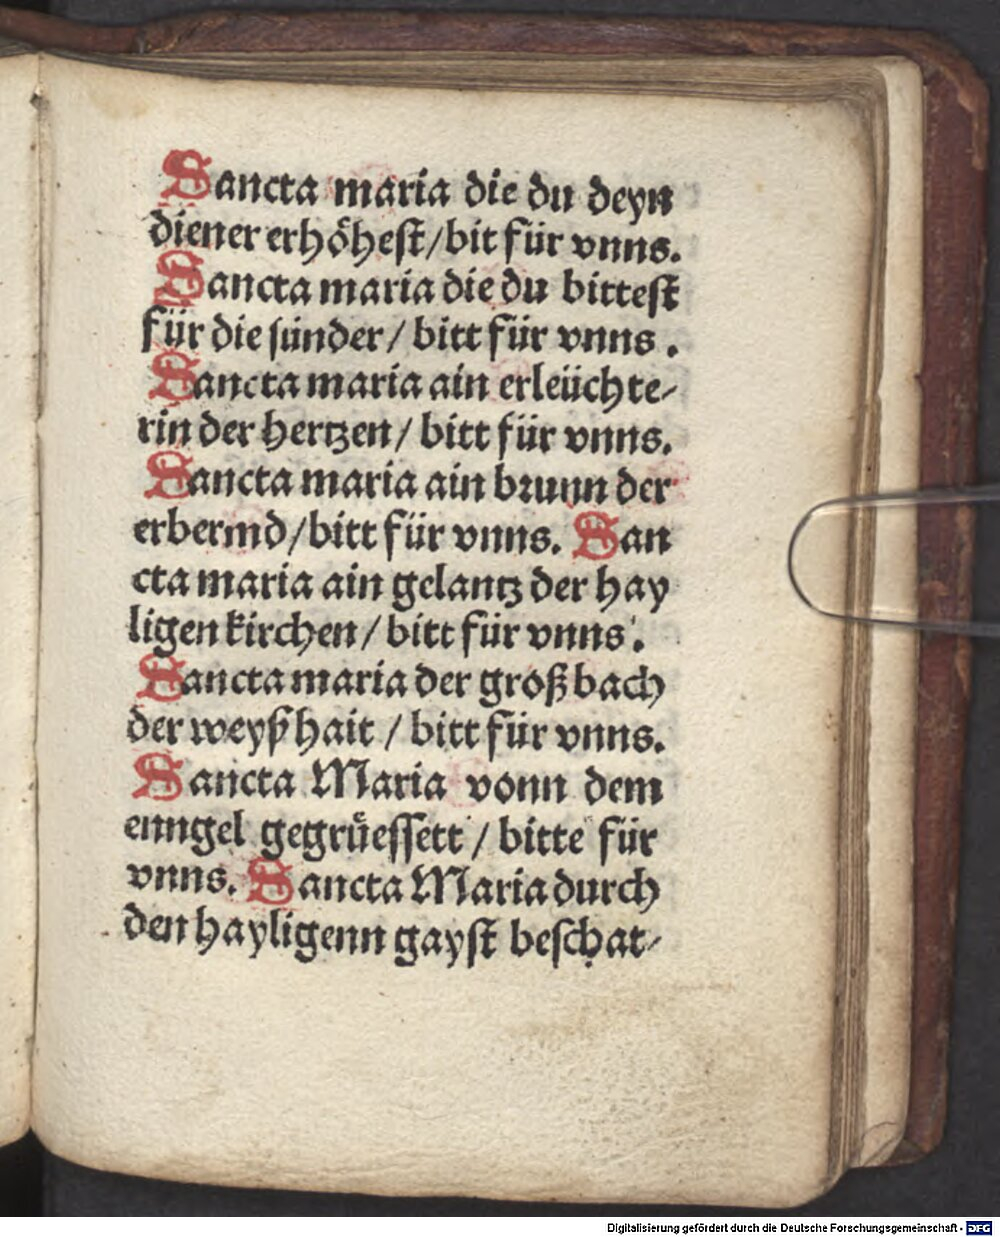 Sancta maria die du deyn
diener erhöhest/bit für vnns.
Sancta maria die du bittest
für die sünder/ bitt für vnns .
Sancta maria ain erleüchte-
rin der hertzen/ bitt für vnns.
Sancta maria ain brunn der
erbermd/bitt für vnns. San
cta maria ain gelantz der hay
ligen kirchen/ bitt für vnns.
Sancta maria der groß bach
der weyßhait / bitt für vnns.
Sancta Maria vonn dem
enngel gegrüessett / bitte für
vnns. Sancta Maria durch
den hayligenn gayst beschat-
Digitalisierung gefördert durch die Deutsche Forschungsgemeinschaft - DFG